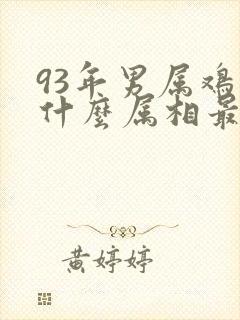 93年男属鸡
什麼属相最
黄婷婷